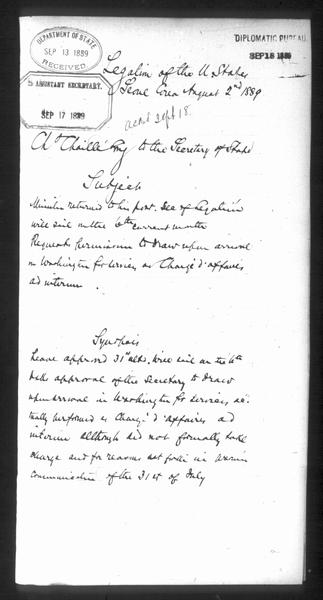 DEPARTMENT OF STATE
SEP 13 1889
RECEIVED
DIPLOMATIC BUREAU
SEP 18 1889
ASSISTANT SECRETARY.
SEP 17 1889
Legation of the U States
Seoul Corea August 2nd 1889
ackd Sept 18
Chaillé Long to the Secretary of State
Subject
Minister returned to his post. Sec of Legation
will sail on the 6th current month
Requests Permission to Draw upon arrival
in Washington for services as Chargé d'affaires
ad interim
Synopsis
Leave approved 31st ulto. will sail on the 6th
asks approval of the Secretary to draw
upon arrival in Washington for services ac-
tually performed as Chargé d'affaires ad
interim although did not formally take
charge and for reasons set forth in
communication of the 31st of July